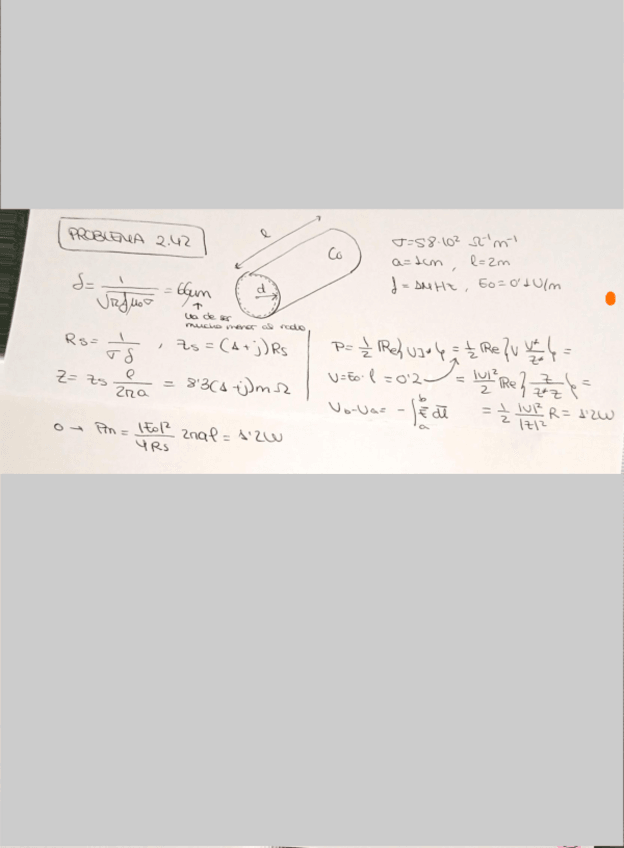 PROBLEMA 2.42
l
Co
d
σ=58·10² Ω⁻¹m⁻¹
a=1cm, l=2m
f=1MHz, E₀=0'1V/m
δ= 1/√(πfμ₀σ) = 66μm
↑
ha de ser
mucho menor al radio
Rs= 1/(σδ), Zs=(1+j)Rs
Z= Zs l/(2πa) = 8'3(1+j)mΩ
O → Pm= |E₀|²/(4Rs) 2πal = 1'2W
P= 1/2 Re{VJ*} = 1/2 Re{V V*/Z*} =
V=E₀·l = 0'2 = |V|²/2 Re{Z/(Z*Z)} =
V_b-V_a= -∫_a^b E dl = 1/2 |V|²/|Z|² R= 1'2W